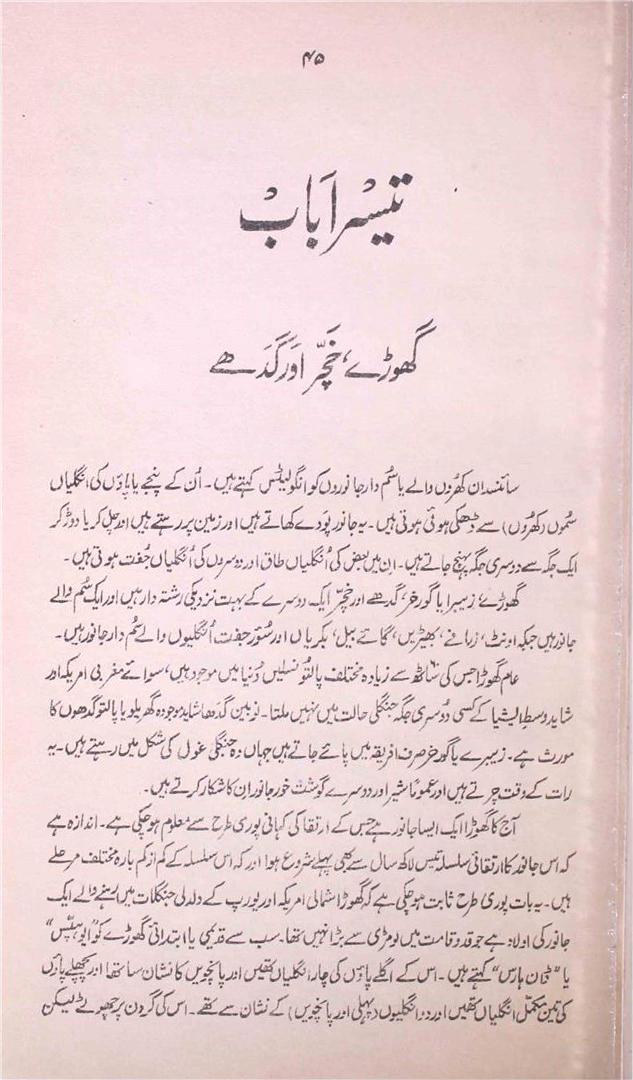 ۴۵
تیسرا باب
گھوڑے، خچّر اور گدھے
سائنسدان کھروں والے یا سُم دار جانوروں کو انگولیٹس کہتے ہیں۔ اُن کے پنجے یا پاؤں کی انگلیاں
سُموں (کھروں) سے ڈھکی ہوئی ہوتی ہیں۔ یہ جانور پودے کھاتے ہیں اور زمین پر رہتے ہیں اور چل کر یا دوڑ کر
ایک جگہ سے دوسری جگہ پہنچ جاتے ہیں۔ ان میں بعض کی اُنگلیاں طاق اور دوسروں کی اُنگلیاں جُفت ہوتی ہیں۔
گھوڑے، زیبرا یا گورخر، گدھے اور خچّر ایک دوسرے کے بہت نزدیکی رشتہ دار ہیں اور ایک سُم والے
جانور ہیں جبکہ اونٹ، زرافے، بھیڑیں، گائے بیل، بکریاں اور سُوَر جفت اُنگلیوں والے سُم دار جانور ہیں۔
عام گھوڑا جس کی ساٹھ سے زیادہ مختلف پالتو نسلیں دُنیا میں موجود ہیں، سوائے مغربی امریکہ اور
شاید وسط ایشیا کے کسی دوسری جگہ جنگلی حالت میں نہیں ملتا۔ نوبین گدھا شاید موجودہ گھریلو یا پالتو گدھوں کا
مورث ہے۔ زیبرے یا گورخر صرف افریقہ میں پائے جاتے ہیں جہاں وہ جنگلی غول کی شکل میں رہتے ہیں۔ یہ
رات کے وقت چرتے ہیں اور عموماً شیر اور دوسرے گوشت خور جانور ان کا شکار کرتے ہیں۔
آج کا گھوڑا ایک ایسا جانور ہے جس کے ارتقا کی کہانی پوری طرح سے معلوم ہو چکی ہے۔ اندازہ ہے
کہ اس جانور کا ارتقائی سلسلہ تیس لاکھ سال سے بھی پہلے شروع ہوا اور کہ اس سلسلہ کے کم از کم بارہ مختلف مرحلے
ہیں۔ یہ بات پوری طرح ثابت ہو چکی ہے کہ گھوڑا شمالی امریکہ اور یورپ کے دلدلی جنگلات میں رہنے والے ایک
جانور کی اولاد ہے جو قد و قامت میں لومڑی سے بڑا نہیں تھا۔ سب سے قدیمی یا ابتدائی گھوڑے کو "ایوہپس"
یا "ڈان ہارس" کہتے ہیں۔ اس کے اگلے پاؤں کی چار انگلیاں تھیں اور پانچویں کا نشان سا تھا اور پچھلے پاؤں
کی تین مکمّل انگلیاں تھیں اور دو انگلیوں (پہلی اور پانچویں) کے نشان سے تھے۔ اس کی گردن پر چھوٹے لیکن